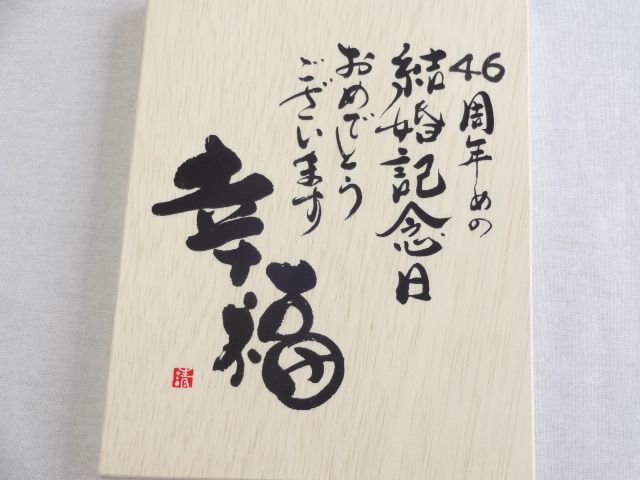 46周年めの
結婚記念日
おめでとう
ございます
幸福
清